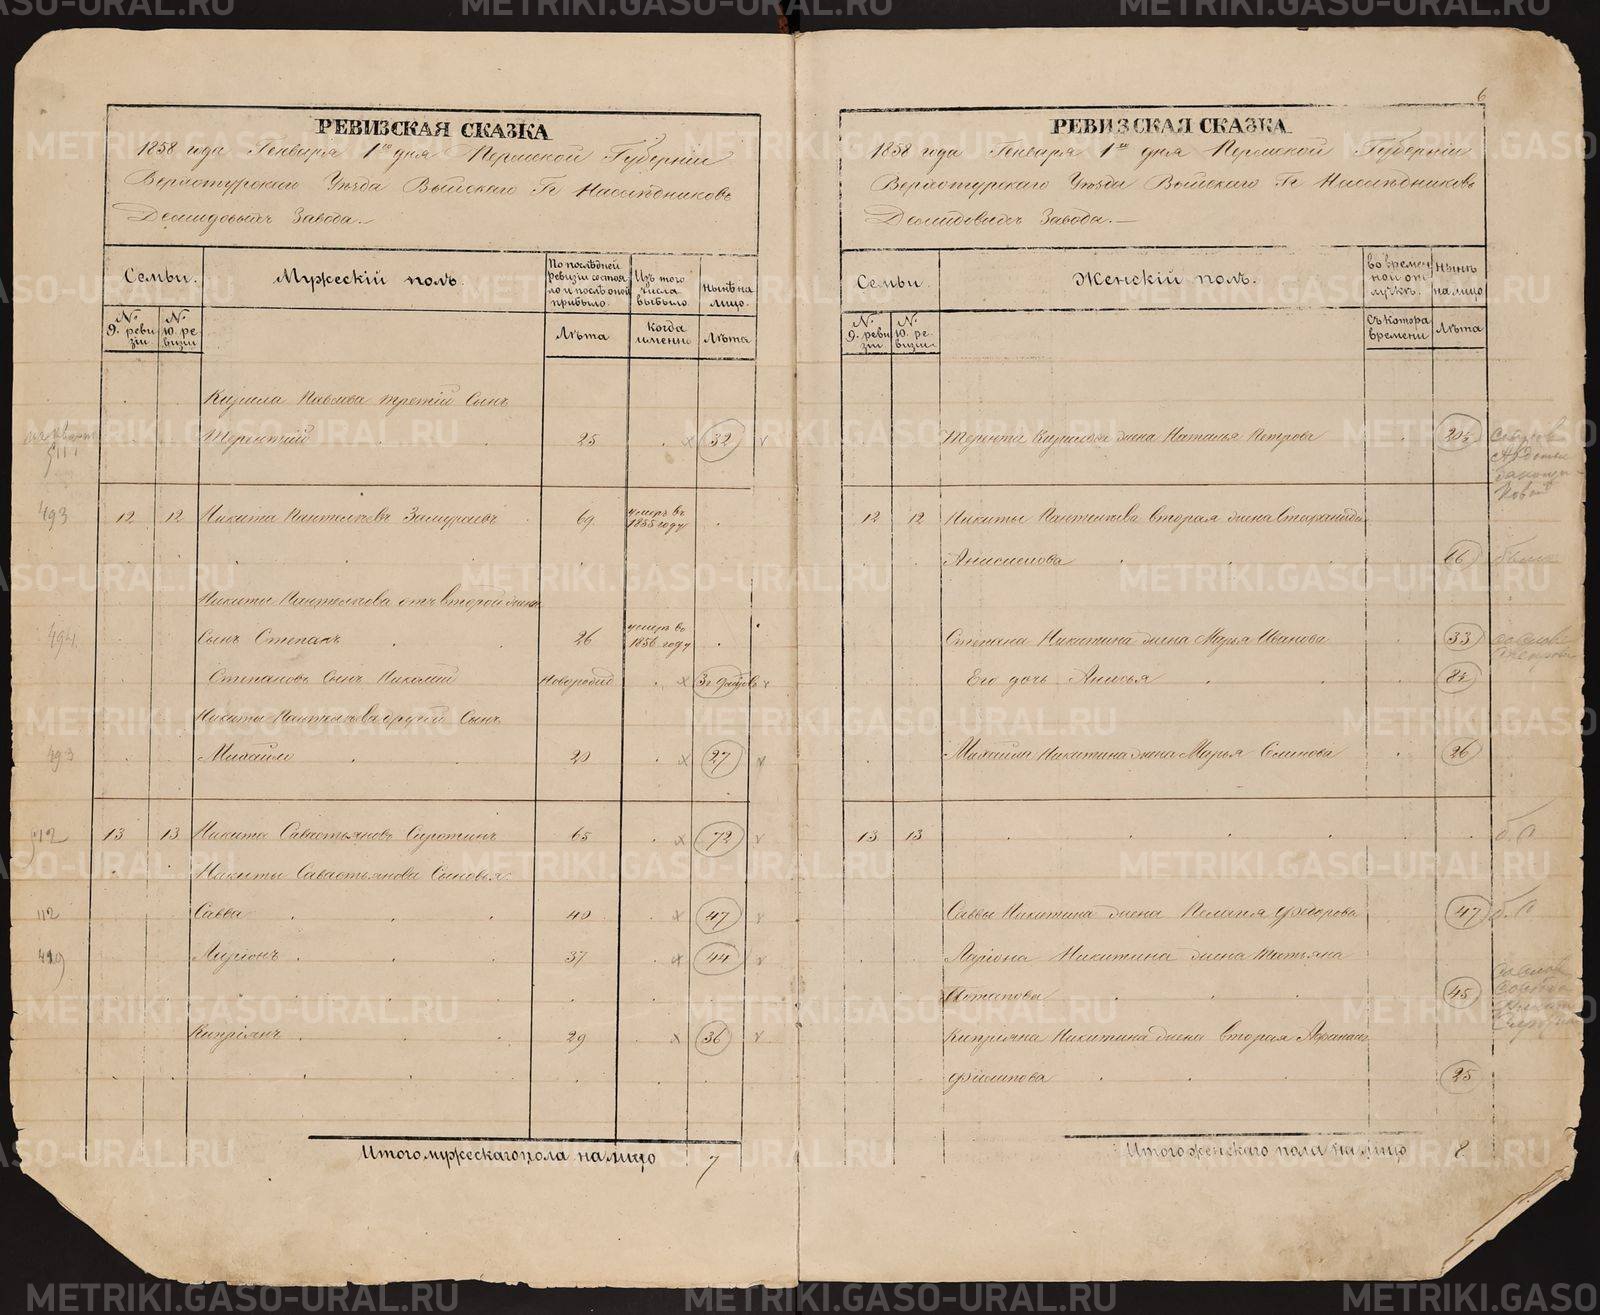 6
РЕВИЗСКАЯ СКАЗКА
1858 года Генваря 1го дня Пермской Губерніи
Верхотурскаго Уѣзда Выйскаго Гг Наслѣдниковъ
Демидовыхъ Завода.
Семьи. Мужескій полъ. По послѣдней ревизіи состояло и послѣ оной прибыло. Изъ того числа выбыло. Нынѣ на лицо.
№ 9. ревизіи № 10. ревизіи Лѣта Когда именно Лѣта
Кирила Павлова третій сынъ
Терентій 25 32
493 12 12 Никита Пантелѣевъ 69 умеръ въ 1855 году
Никиты Пантелѣева отъ второй жены
494 сынъ Степанъ 26 умеръ въ 1856 году
Степановъ сынъ Николай новорожд 3
Никиты Пантелѣева другой сынъ
493 Михайло 20 27
13 13 Никита Савастьяновъ Сиротинъ 65 72
Никиты Савастьянова сыновья:
112 Савва 40 47
Ларіонъ 37 44
Кипріянъ 29 36
Итого мужескаго пола на лицо 7
РЕВИЗСКАЯ СКАЗКА
1858 года Генваря 1го дня Пермской Губерніи
Верхотурскаго Уѣзда Выйскаго Гг Наслѣдниковъ
Демидовыхъ Завода.
Семьи. Женскій полъ. Во временной отлучкѣ. Нынѣ на лицо
№ 9. ревизіи № 10. ревизіи Съ котора времени Лѣта
Терентья Кирилова жена Наталья Петрова
12 12 Никиты Пантелѣева вторая жена
Анисимова 66
Степана Никитина жена Марья Иванова 33
Его дочь Анисья
Михайла Никитина жена Марья Семенова 26
13 13
Саввы Никитина жена Пелагея Федорова 47
Ларіона Никитина жена Татьяна
Потапова 45
Кипріяна Никитина жена вторая
Филипова 25
Итого женскаго пола на лицо 8
METRIKI.GASO-URAL.RU